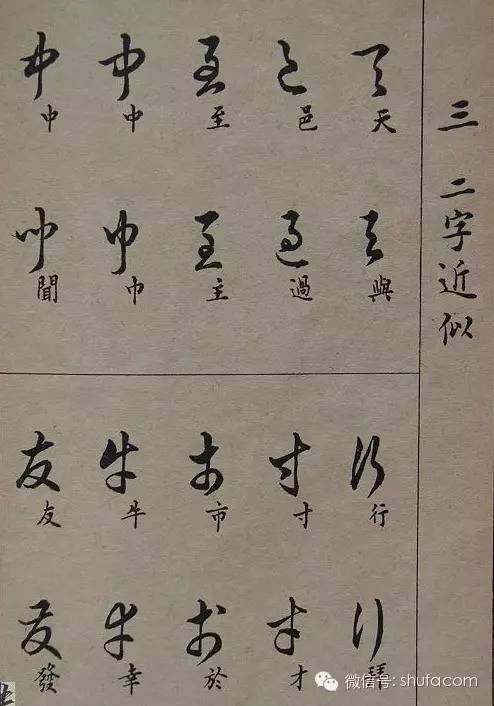 三 二字近似
天 與
邑 過
至 主
中 巾
中 聞
行 拜
寸 才
市 於
牛 幸
友 發
微信号: shufacom